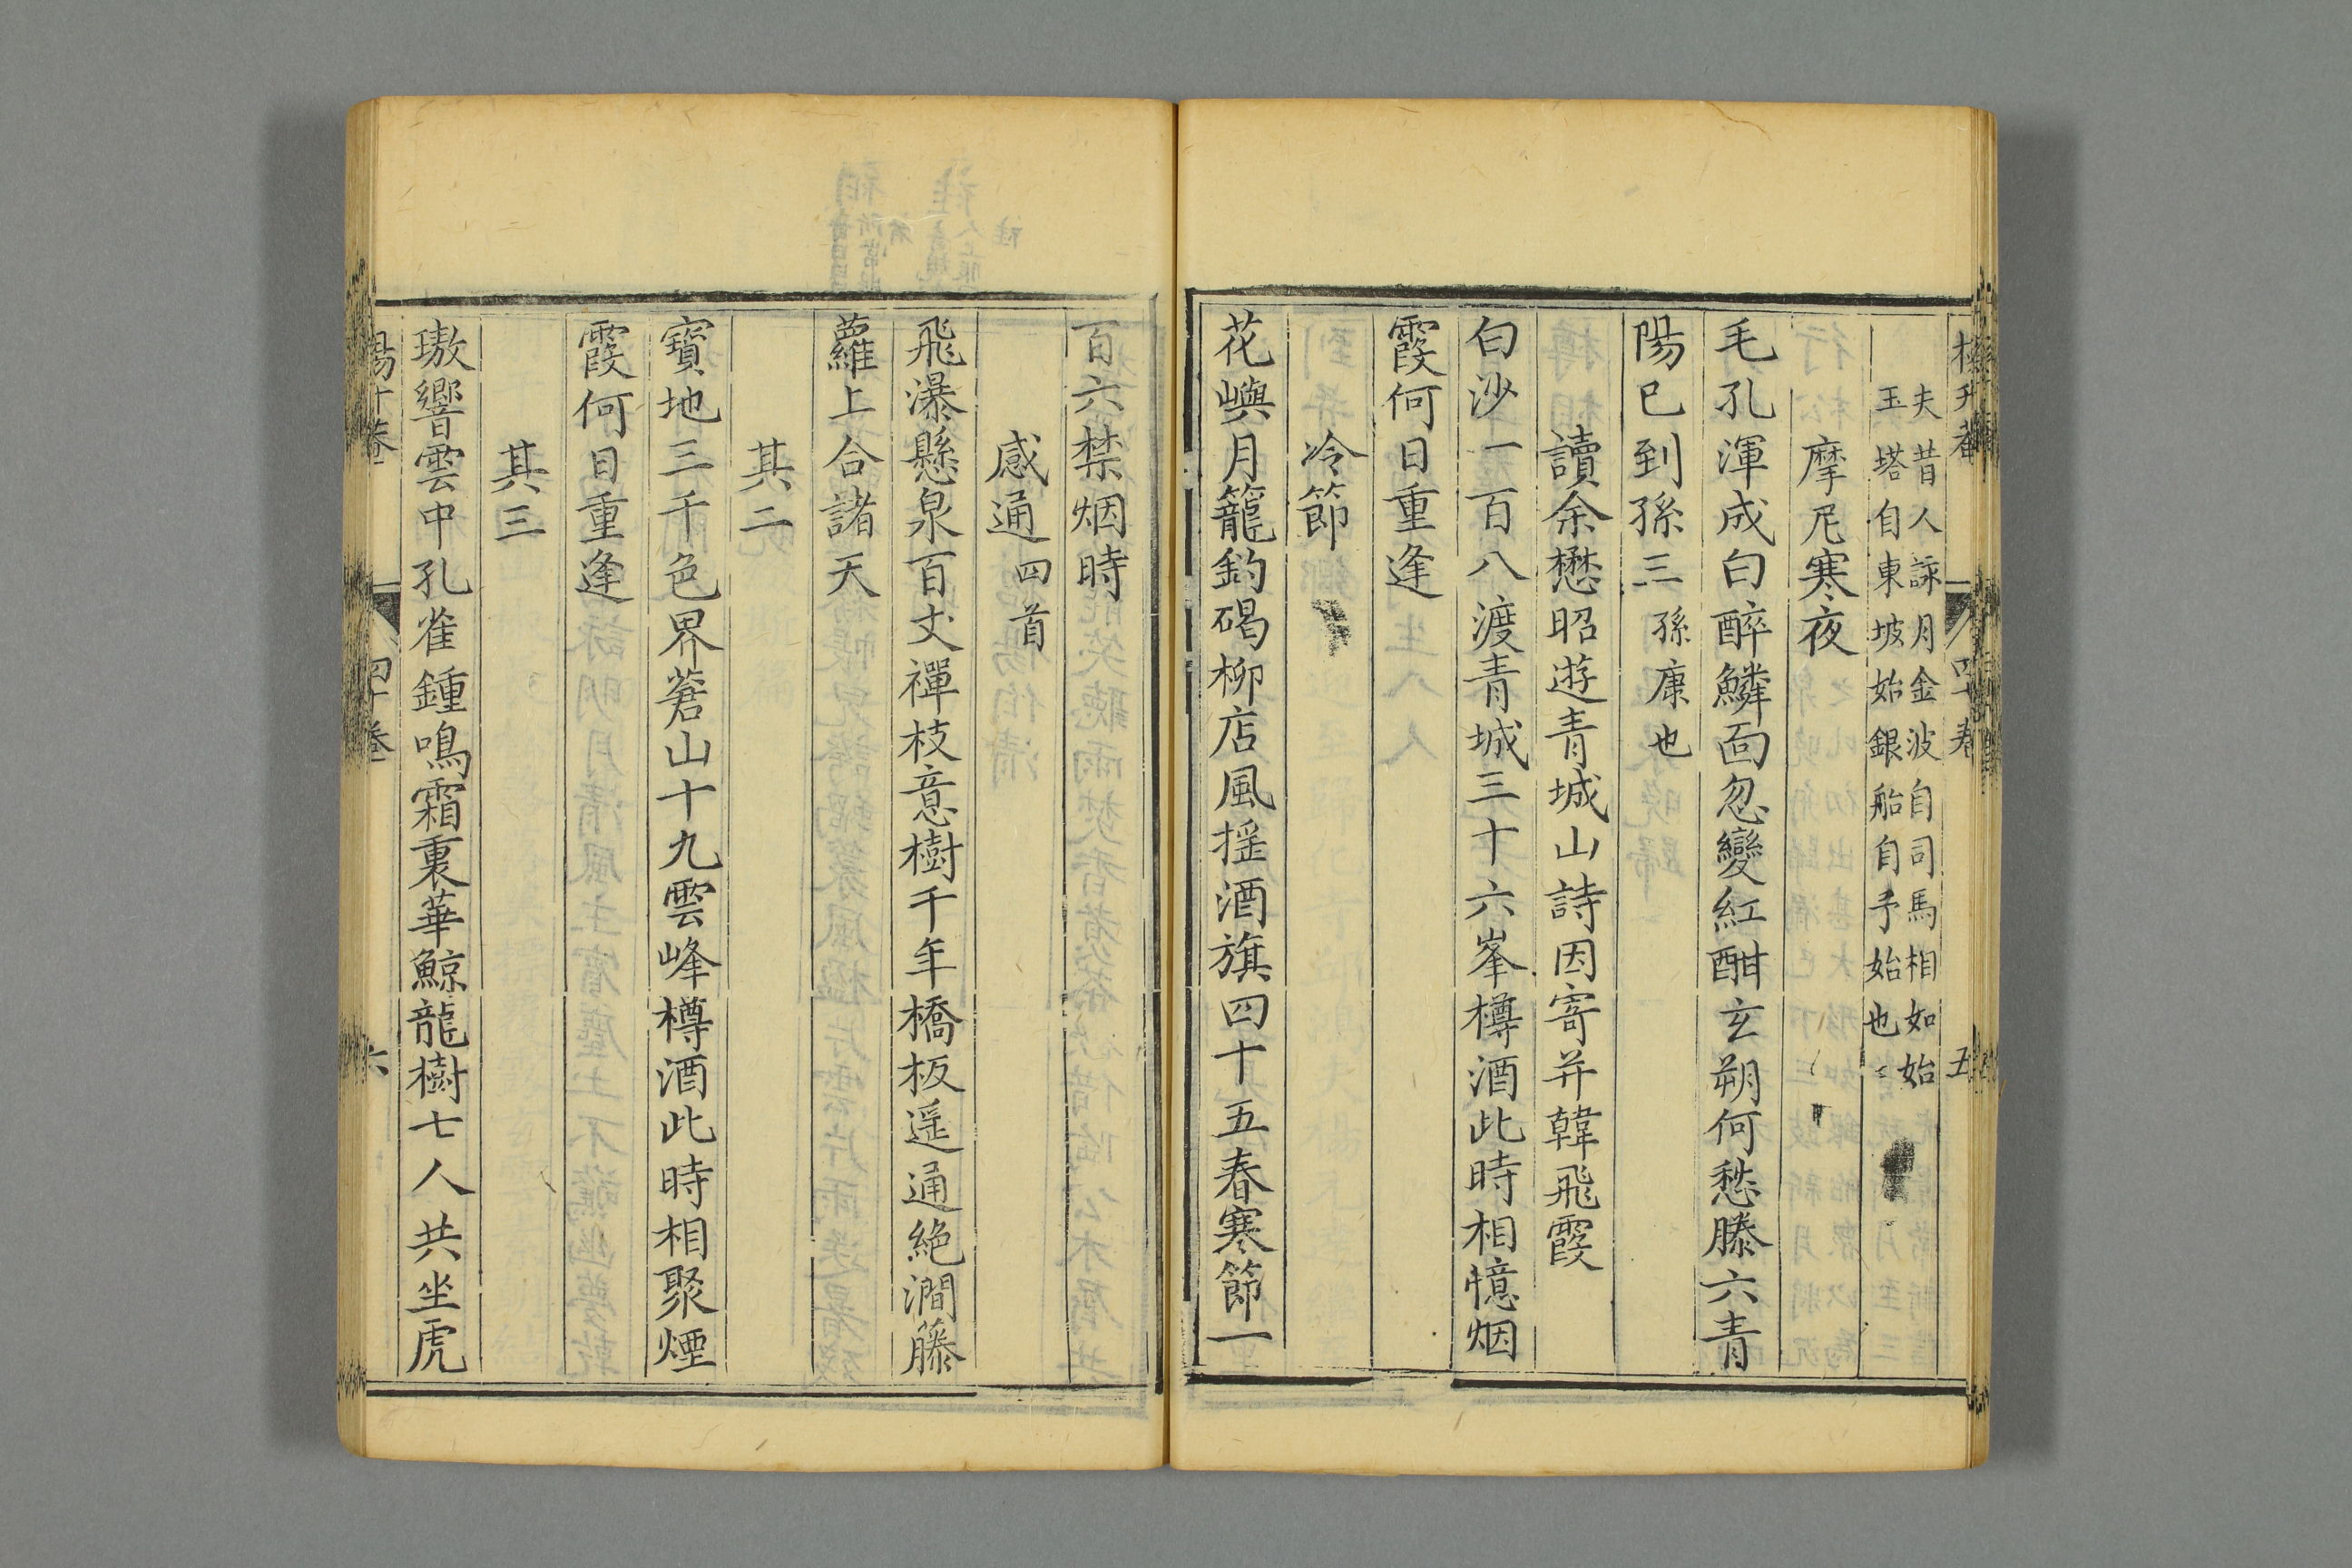 夫昔人詠月金波自司馬相如始
玉塔自東坡始銀船自予始也
摩尼寒夜
毛孔渾成白醉鱗面忽變紅酣玄朔何愁滕六青
陽已到孫三孫康也
讀余懋昭遊青城山詩因寄并韓飛霞
白沙一百八渡青城三十六峯樽酒此時相憶烟
霞何日重逢
冷節
花嶼月籠釣碣柳店風搖酒旗四十五春寒節一
百六禁烟時
感通四首
飛瀑懸泉百丈禪枝意樹千年橋板遥通絶澗藤
蘿上合諸天
其二
寶地三千色界蒼山十九雲峰樽酒此時相聚煙
霞何日重逢
其三
璈響雲中孔雀鍾鳴霜裏華鯨龍樹七人共坐虎
四十卷
六